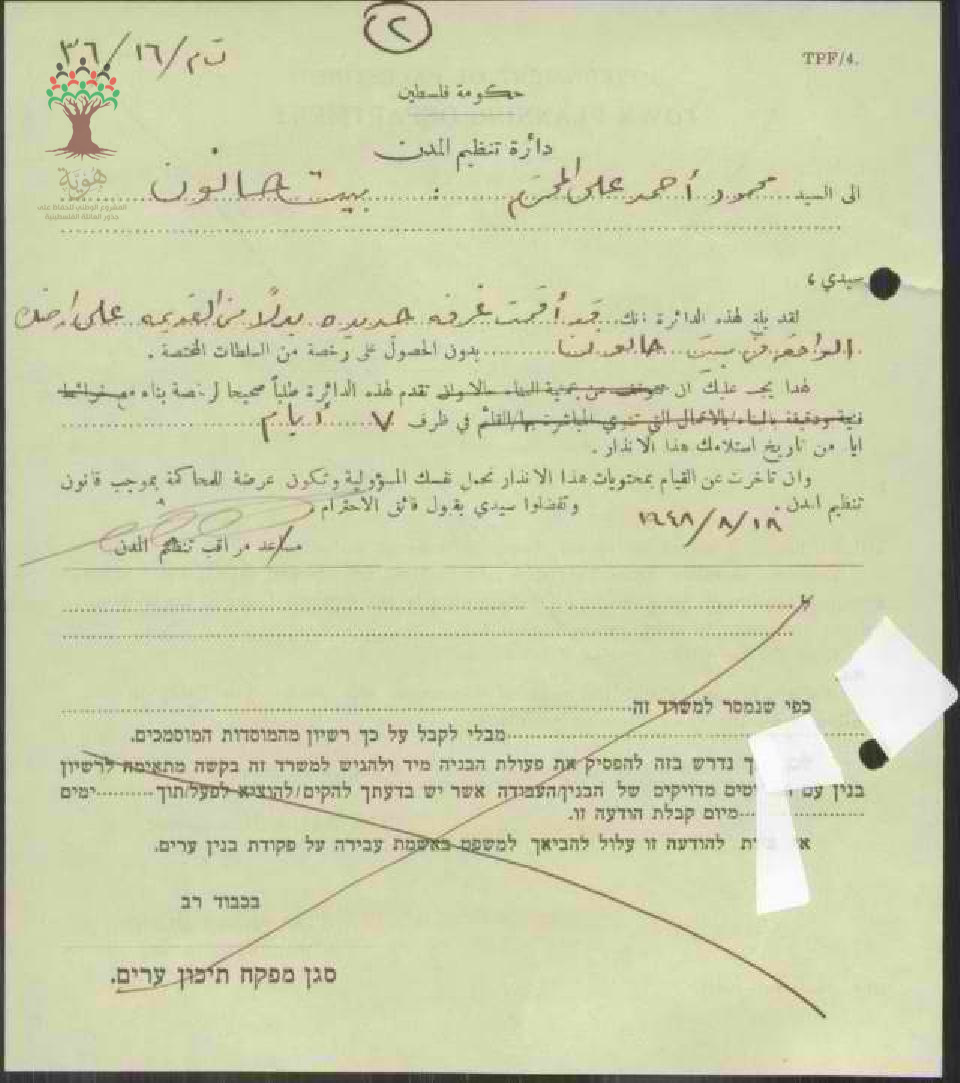 ٢
ت م/١٦/٣٦
TPF/4.
حكومة فلسطين
دائرة تنظيم المدن
الى السيد محمود أحمد على المحترم : بيت حانون
هوية
المشروع الوطني للحفاظ على
جذور العائلة الفلسطينية
سيدي ،
لقد بلغ لهذه الدائرة انك قد أقمت غرفه جديده بدلًا من القديمه على ارضك
الواقعة في بيت حانون بدون الحصول على رخصة من السلطات المختصة .
لهذا يجب عليك ان تتوقف عن عملية البناء حالا وان تقدم لهذه الدائرة طلباً صحيحا لرخصة بناء مع خرائط
فنية ودقيقة بالبناء/بالاعمال التي تنوي المباشرة بها/القائم في ظرف ٧ أيام
ايام من تاريخ استلامك هذا الانذار .
وان تاخرت عن القيام بمحتويات هذا الانذار تحمل نفسك المسؤولية وتكون عرضة للمحاكمة بموجب قانون
تنظيم المدن . وتفضلوا سيدي بقبول فائق الاحترام ،
مساعد مراقب تنظيم المدن
א
כפי שנמסר למשרד זה
מבלי לקבל על כך רשיון מהמוסדות המוסמכים.
ך נדרש בזה להפסיק את פעולת הבניה מיד ולהגיש למשרד זה בקשה מתאימה לרשיון
בנין עם מדויקים של הבנין/העבודה אשר יש בדעתך להקים/להוציא לפעל/תוך ימים
מיום קבלת הודעה זו.
להודעה זו עלול להביאך למשפט באשמת עבירה על פקודת בנין ערים.
בכבוד רב
סגן מפקח תיכון ערים.